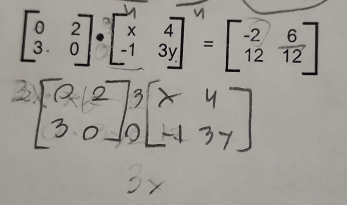 [0 2 3. 0] • [x 4 -1 3y] = [-2 6 12 12]
[0 2 3 0] 3 0 [x 4 -1 3y]
3x